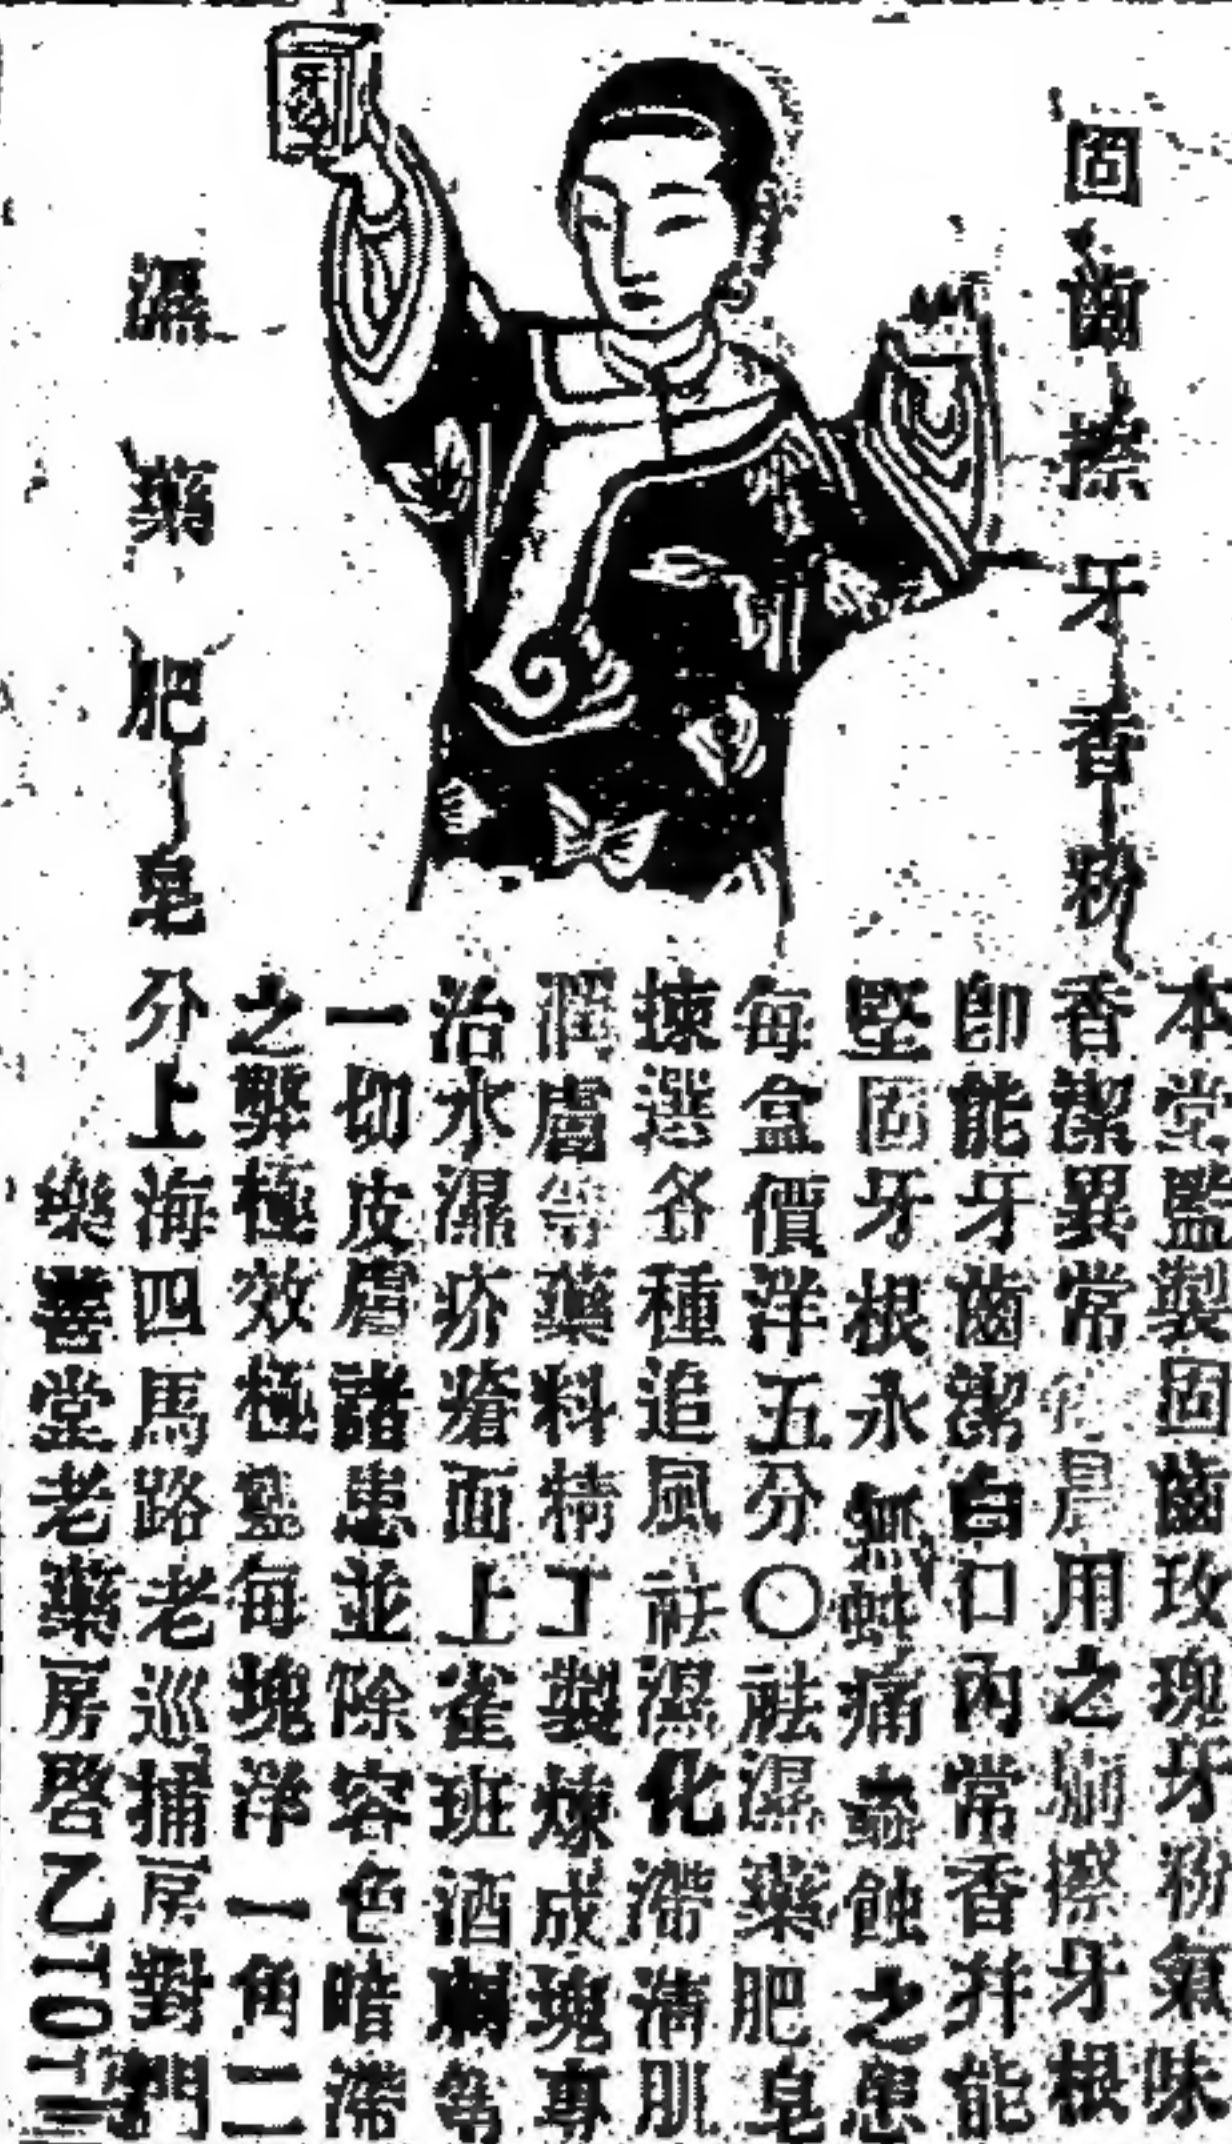 固齒擦牙香粉
濕藥肥皂
本堂監製固齒玫瑰牙粉氣味
香潔異常晨用之刷擦牙根
卽能牙齒潔白口內常香幷能
堅固牙根永無蛀痛蟲蝕之患
每盒價洋五分〇祛濕藥肥皂
揀選各種追風祛濕化滯淸肌
潤膚等藥料精工製煉成塊專
治水濕疥瘡面上雀班酒刺等
一切皮膚諸患並除容色暗滯
之弊極效極靈每塊洋一角二
分上海四馬路老巡捕房對門
樂善堂老藥房啓乙